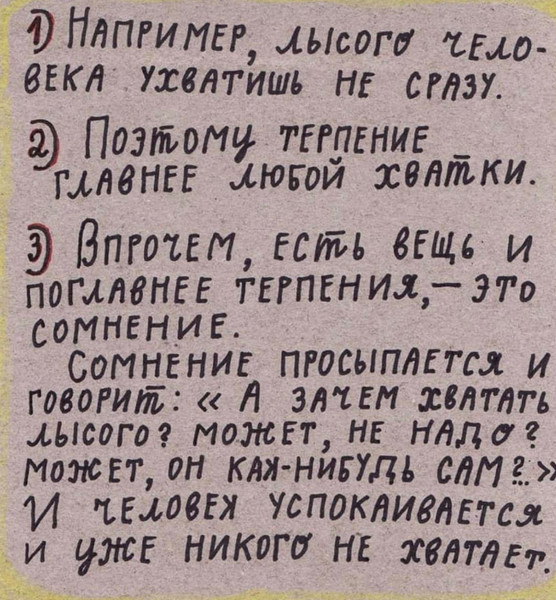 1) Например, лысого чело-
века ухватишь не сразу.
2) Поэтому терпение
главнее любой хватки.
3) Впрочем, есть вещь и
поглавнее терпения, — это
сомнение.
Сомнение просыпается и
говорит: « А зачем хватать
лысого? Может, не надо?
Может, он как-нибудь сам?..»
И человек успокаивается
и уже никого не хватает.